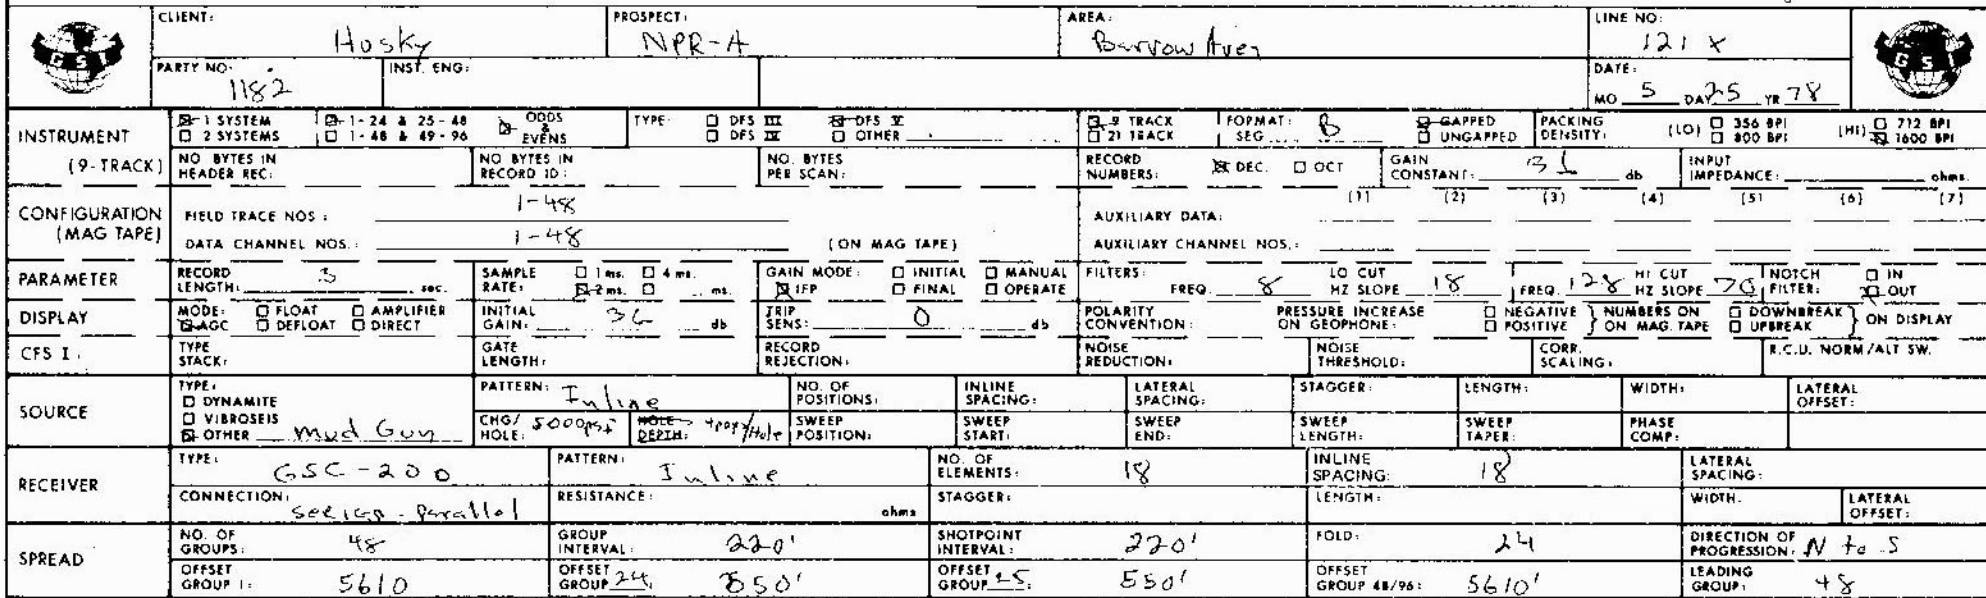 CLIENT: Husky PROSPECT: NPR-A AREA: Barrow Area LINE NO: 121 X
GSI
PARTY NO. 1182 INST. ENG: DATE: MO 5 DAY 25 YR 78
GSI
INSTRUMENT (9-TRACK) 1 SYSTEM 1-24 & 25-48 ODDS & EVENS TYPE: DFS III DFS V 9 TRACK FORMAT: SEG B GAPPED PACKING DENSITY: (LO) 356 BPI (HI) 712 BPI
2 SYSTEMS 1-48 & 49-96 DFS IV OTHER 21 TRACK UNGAPPED 800 BPI 1600 BPI
NO BYTES IN HEADER REC: NO BYTES IN RECORD ID: NO. BYTES PER SCAN: RECORD NUMBERS: DEC. OCT GAIN CONSTANT: db INPUT IMPEDANCE: ohms.
CONFIGURATION (MAG TAPE) FIELD TRACE NOS: 1-48 AUXILIARY DATA: (1) (2) (3) (4) (5) (6) (7)
DATA CHANNEL NOS.: 1-48 (ON MAG TAPE) AUXILIARY CHANNEL NOS.:
PARAMETER RECORD LENGTH: 3 sec. SAMPLE RATE: 1 ms. 4 ms. 2 ms. ms. GAIN MODE: INITIAL MANUAL IFP FINAL OPERATE FILTERS: FREQ. 8 LO CUT HZ SLOPE 18 FREQ. 128 HI CUT HZ SLOPE 70 NOTCH FILTER: IN OUT
DISPLAY MODE: FLOAT AMPLIFIER AGC DEFLOAT DIRECT INITIAL GAIN: db TRIP SENS: 0 db POLARITY CONVENTION: PRESSURE INCREASE ON GEOPHONE: NEGATIVE POSITIVE NUMBERS ON MAG. TAPE DOWNBREAK UPBREAK ON DISPLAY
CFS I: TYPE STACK: GATE LENGTH: RECORD REJECTION: NOISE REDUCTION: NOISE THRESHOLD: CORR. SCALING: R.C.U. NORM/ALT SW.
SOURCE TYPE: DYNAMITE VIBROSEIS OTHER Mud Gun PATTERN: Inline NO. OF POSITIONS: INLINE SPACING: LATERAL SPACING: STAGGER: LENGTH: WIDTH: LATERAL OFFSET:
CHG/HOLE: 5000psi HOLE DEPTH: 4pops/Hole SWEEP POSITION: SWEEP START: SWEEP END: SWEEP LENGTH: SWEEP TAPER: PHASE COMP:
RECEIVER TYPE: GSC-200 PATTERN: Inline NO. OF ELEMENTS: 18 INLINE SPACING: 18 LATERAL SPACING:
CONNECTION: series-parallel RESISTANCE: ohms STAGGER: LENGTH: WIDTH. LATERAL OFFSET:
SPREAD NO. OF GROUPS: 48 GROUP INTERVAL: 220' SHOTPOINT INTERVAL: 220' FOLD: 24 DIRECTION OF PROGRESSION: N to S
OFFSET GROUP 1: 5610 OFFSET GROUP 24: 550' OFFSET GROUP 25: 550' OFFSET GROUP 48/96: 5610' LEADING GROUP: 48